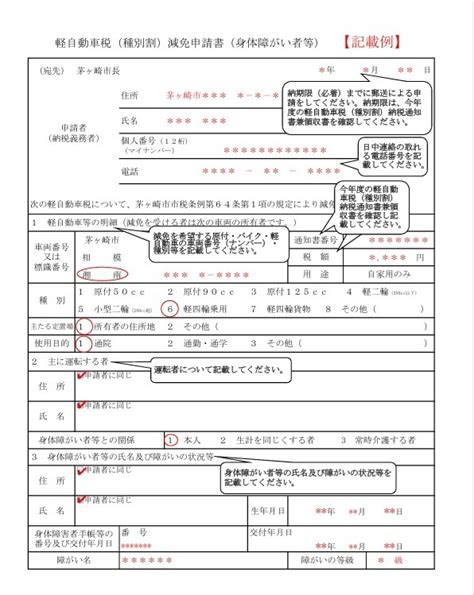 軽自動車税（種別割）減免申請書（身体障がい者等）　【記載例】
（宛先）茅ヶ崎市長　＊年　＊月　＊＊日
申請者
（納税義務者）
住所　茅ヶ崎市＊＊＊　＊－＊－＊
氏名　＊＊　＊＊
個人番号（１２桁）
（マイナンバー）　＊＊＊＊＊＊＊＊＊＊＊＊
電話　＊＊＊＊　－　＊＊　－　＊＊＊＊
納期限（必着）までに郵送による申
請をしてください。納期限は、今年
度の軽自動車税（種別割）納税通知
書兼領収書を確認してください。
日中連絡の取れ
る電話番号を記
載してください。
今年度の軽自動
車税（種別割）
納税通知書兼領
収書を確認し記
載してください。
次の軽自動車税について、茅ヶ崎市市税条例第６４条第１項の規定により減免
１　軽自動車等の明細（減免を受ける者は次の車両の所有者です。）
車両番号
又は
標識番号
茅ヶ崎市
相　模
湘　南
＊＊＊　＊－＊＊＊＊
減免を希望する原付・バイク・軽
自動車の車両番号（ナンバー）・
種別等を記載してください。
通知書番号　＊＊＊＊＊＊＊
税　額　＊，＊＊＊　円
用　途　自家用のみ
種　別
１　原付５０ｃｃ　２　原付９０ｃｃ　３　原付１２５ｃｃ　４　軽二輪
５　小型二輪　６　軽四輪乗用　７　軽四輪貨物　８　その他（　）
主たる定置場　１　所有者の住所地　２　その他（　）
使用目的　１　通院　２　通勤・通学　３　その他（　）
２　主に運転する者
運転者について記載してください。
住　所　申請者に同じ
氏　名　申請者に同じ
身体障がい者等との関係　１　本人　２　生計を同じくする者　３　常時介護する者
３　身体障がい者等の氏名及び障がいの状況等
身体障がい者等の氏名及び障がいの状況等
を記載してください。
住　所　申請者に同じ
氏　名　申請者に同じ
生年月日　＊＊年　＊＊月　＊＊日
身体障害者手帳等の
番号及び交付年月日
番　号
＊＊＊＊＊＊＊
交付年月日　＊＊年　＊＊月　＊＊日
障がい名　＊＊＊＊＊＊　障がいの等級　＊　級